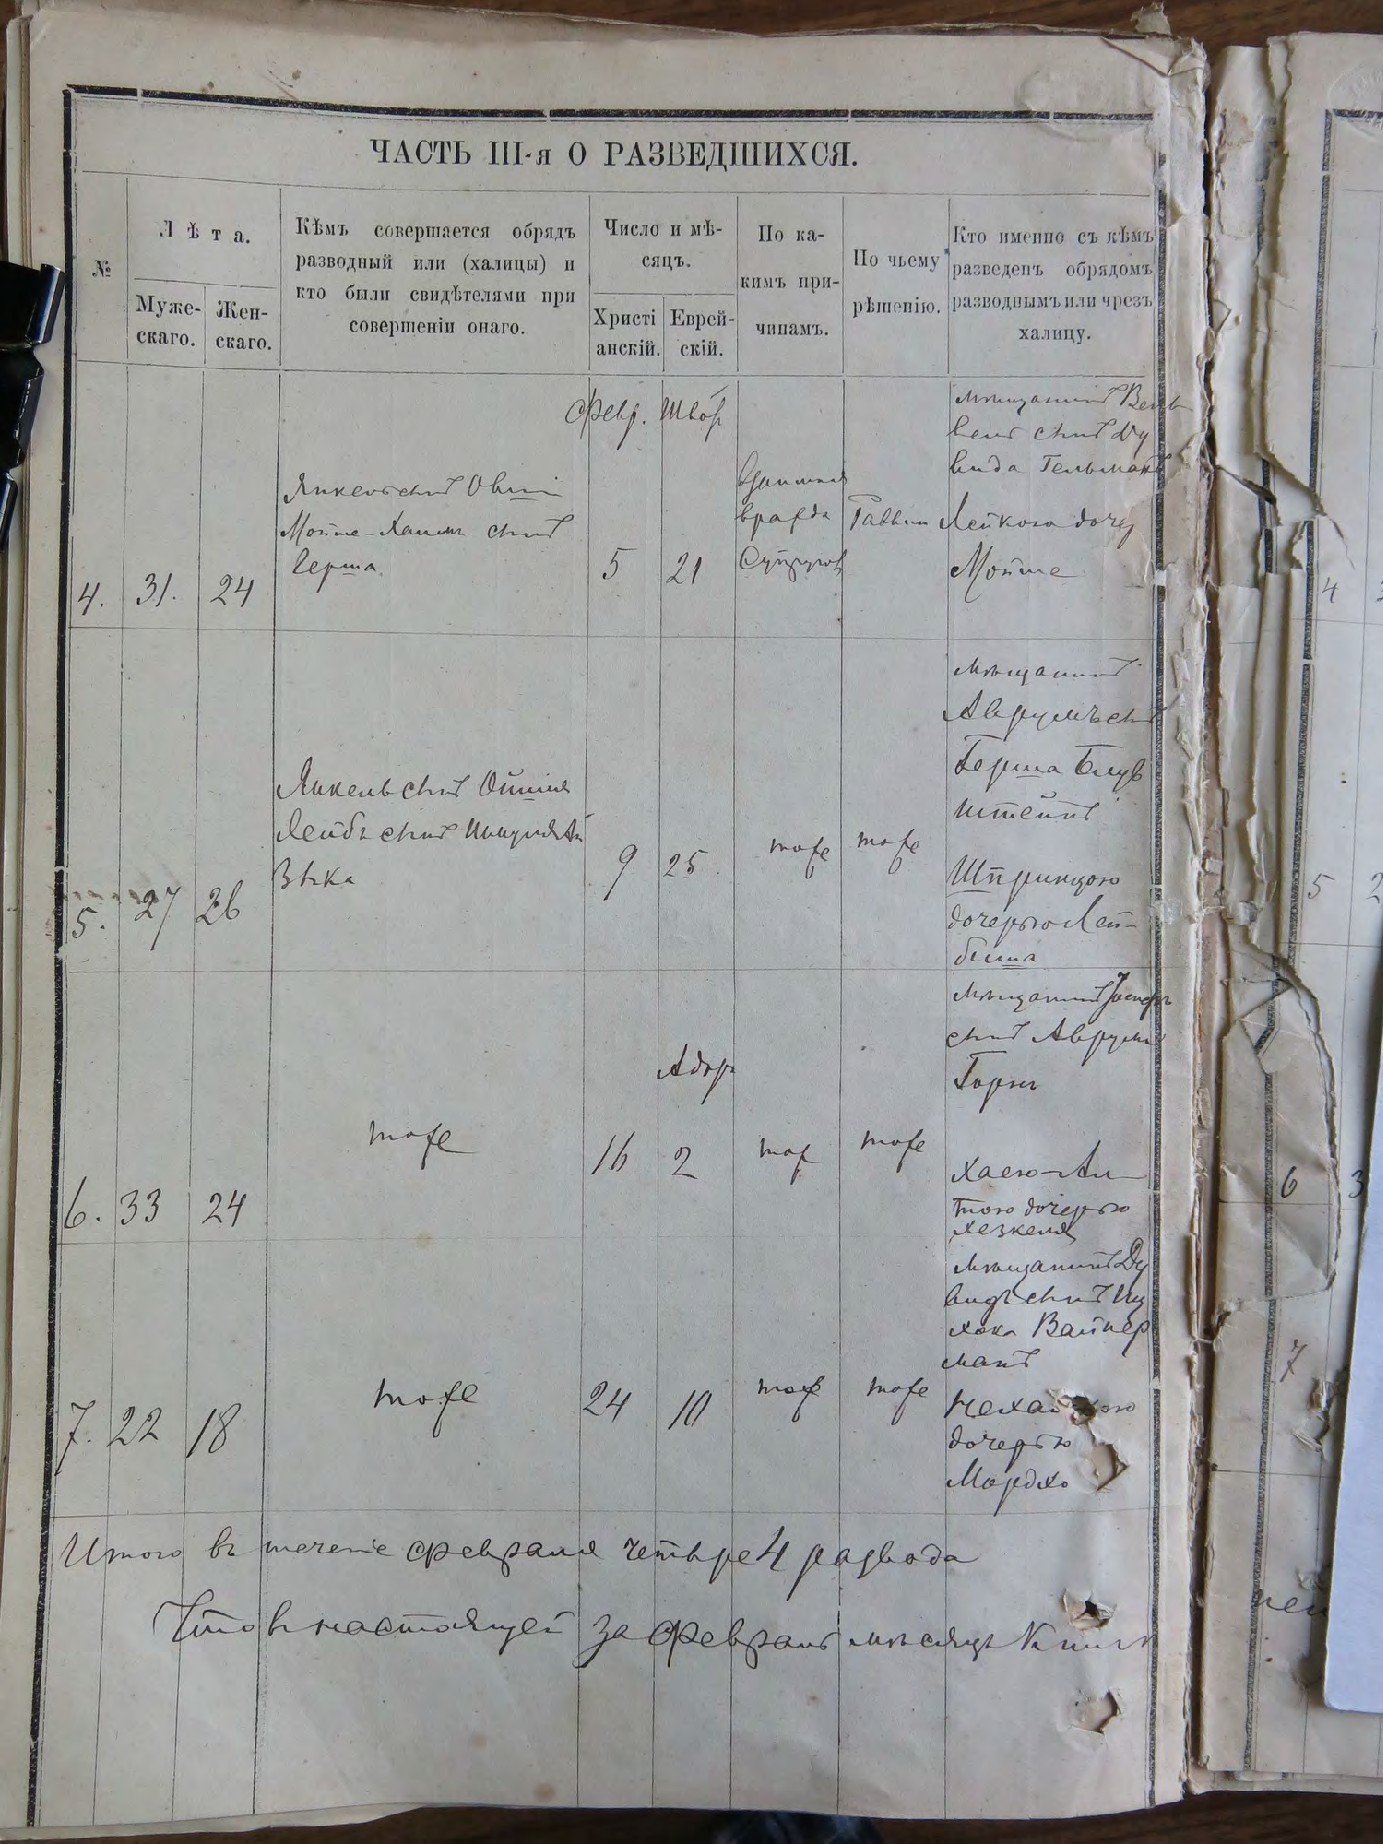 ЧАСТЬ III-я О РАЗВЕДШИХСЯ.
№
Лѣта.
Муже-
скаго.
Жен-
скаго.
Кѣмъ совершается обрядъ
разводный или (халицы) и
кто были свидѣтелями при
совершеніи онаго.
Число и мѣ-
сяцъ.
Христі
анскій.
Еврей-
скій.
По ка-
кимъ при-
чинамъ.
По чьему
рѣшенію.
Кто именно съ кѣмъ
разведенъ обрядомъ
разводнымъ или чрезъ
халицу.
4.
31.
24
Мойше-Хаимъ сынъ
Герша
Февр.
5
Швор
21
вражда
Супругов
Раввин
мѣщанинъ Вель
вель сынъ Ду
вида Гельман
Лейкою дочер
Мойше
5.
27
26
Янкель сынъ
Лейбъ сынъ
зика
9
25
тоже
тоже
мѣщанинъ
Аврумъ сынъ
Герша Блув
штейнъ
Шпринцою
дочерью Лей-
биша
6.
33
24
тоже
16
Адор
2
тож
тоже
мѣщанинъ Іосифъ
сынъ Аврума
Горнъ
Хаею-
тою дочерью
Хезкеля
7.
22
18
тоже
24
10
тоже
тоже
мѣщанинъ Ду
видъ сынъ Иц
хока Вайнер
манъ
дочерью
Мордхо
Итого въ теченіе февраля четыре 4 развода
Что въ настоящей за февраль мѣсяцъ Книгѣ
4
5
2
6
3
7